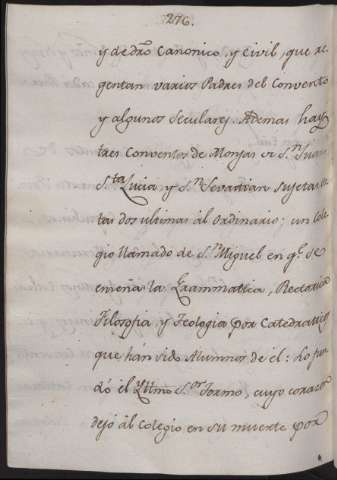 276.
y de dro Canonico, y Civil, que re-
gentan varios Padres del Convento
y algunos Seculares. Ademas hay
tres Conventos de Monjas de Sn Juan
Sta Lucia y Sn Sevastian sujetas es-
tas dos ultimas al ordinario; un Cole-
gio llamado de Sn Miguel en qe se
enseña la Grammatica, Retorica
Filosofia y Teologia por Catedraticos
que hán sido Alumnos de él: Lo fun
dó el Illmo Sor Tormo, cuyo corazon
dejó al Colegio en su muerte por